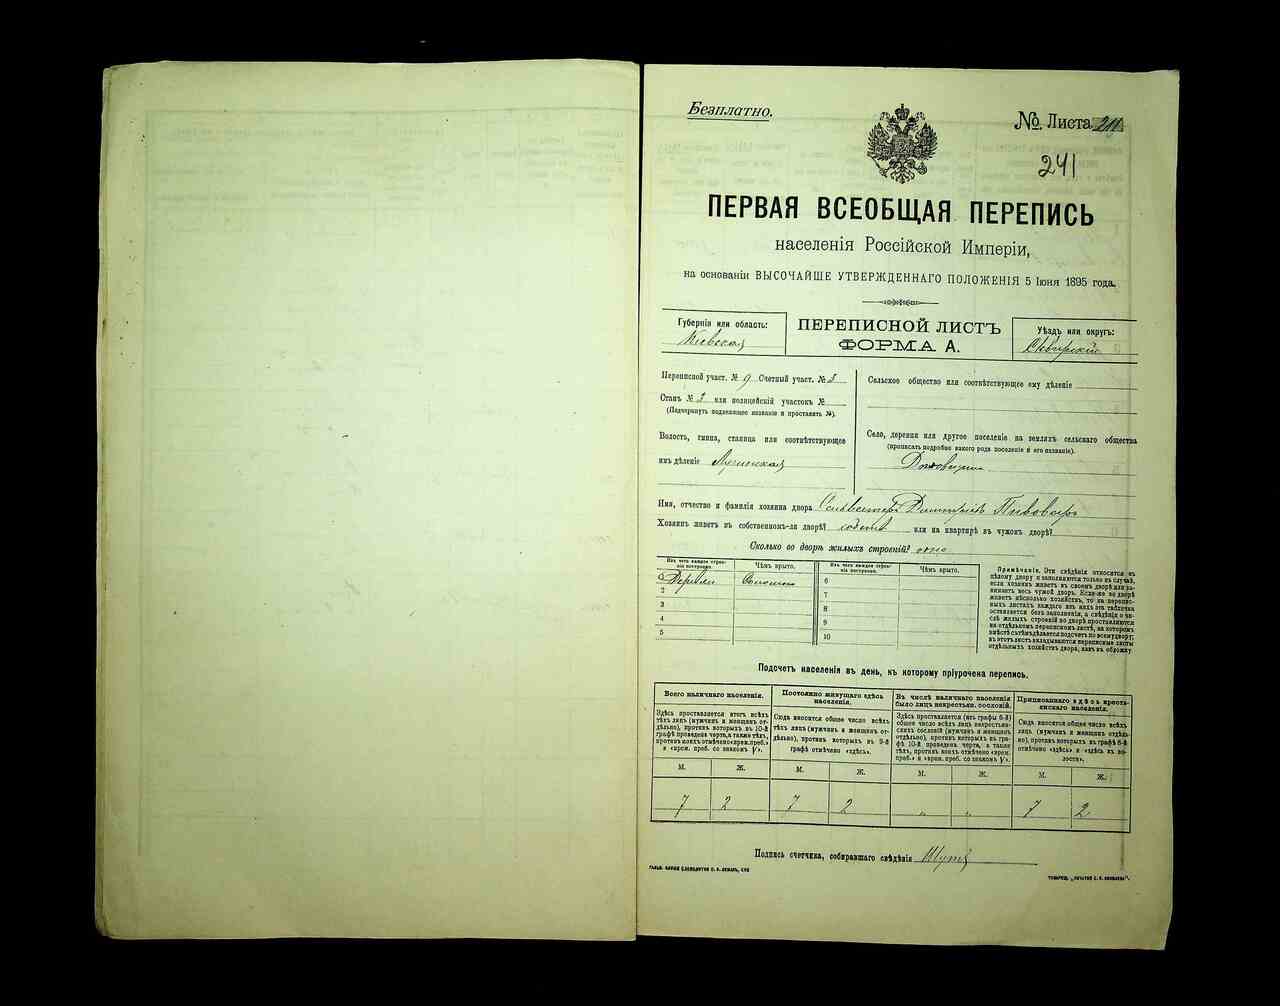 Безплатно.
№ Листа
241
ПЕРВАЯ ВСЕОБЩАЯ ПЕРЕПИСЬ
населенія Россійской Имперіи,
на основаніи ВЫСОЧАЙШЕ УТВЕРЖДЕННАГО ПОЛОЖЕНІЯ 5 Іюня 1895 года.
Губернія или область:
Кіевская
ПЕРЕПИСНОЙ ЛИСТЪ
ФОРМА А.
Уѣздъ или округъ:
Сквирскій
Переписной участ. № 9 Счетный участ. № 5
Станъ № 3 или полицейскій участокъ №
(Подчеркнуть подлежащее названіе и проставить №).
Волость, гмина, станица или соотвѣтствующее
имъ дѣленіе
Сельское общество или соотвѣтствующее ему дѣленіе
Село, деревня или другое поселеніе на земляхъ сельскаго общества
(прописать подробно какого рода поселеніе и его названіе).
Имя, отчество и фамилія хозяина двора Сильвестръ Дмитріевъ Пивоваръ
Хозяинъ живетъ въ собственномъ-ли дворѣ? или на квартирѣ въ чужомъ дворѣ?
Сколько во дворѣ жилыхъ строеній? одно
Изъ чего каждое строе-
ніе построено.
Чѣмъ крыто.
Изъ чего каждое строе-
ніе построено.
Чѣмъ крыто.
1 Дерева Соломою
2
3
4
5
6
7
8
9
10
Примѣчаніе. Эти свѣдѣнія относятся къ
цѣлому двору и заполняются только въ случаѣ,
если хозяинъ живетъ въ своемъ дворѣ или за-
нимаетъ весь чужой дворъ. Если-же во дворѣ
живетъ нѣсколько хозяйствъ, то на перепис-
ныхъ листахъ каждаго изъ нихъ эта табличка
оставляется безъ заполненія, а свѣдѣнія о чи-
слѣ жилыхъ строеній во дворѣ проставляются
на отдѣльномъ переписномъ листѣ, на которомъ
вмѣстѣ съ тѣмъ дѣлается подсчетъ по всему двору;
въ этотъ листъ вкладываются переписные листы
отдѣльныхъ хозяйствъ двора, какъ въ обложку.
Подсчетъ населенія въ день, къ которому пріурочена перепись.
Всего наличнаго населенія.
Здѣсь проставляется итогъ всѣхъ
тѣхъ лицъ (мужчинъ и женщинъ от-
дѣльно), противъ которыхъ въ 10-й
графѣ проведена черта, а также тѣхъ,
противъ коихъ отмѣчено «врем. преб.»
и «врем. преб. со знакомъ V».
Постоянно живущаго здѣсь
населенія.
Сюда вносится общее число всѣхъ
тѣхъ лицъ (мужчинъ и женщинъ от-
дѣльно), противъ которыхъ въ 9-й
графѣ отмѣчено «здѣсь».
Въ числѣ наличнаго населенія
было лицъ некрестьян. сословій.
Здѣсь проставляется (изъ графы 5-й)
общее число всѣхъ лицъ некрестьян-
скихъ сословій (мужчинъ и женщинъ
отдѣльно), противъ которыхъ въ гра-
фѣ 10-й проведена черта, а также
тѣхъ, противъ коихъ отмѣчено «врем.
преб.» и «врем. преб. со знакомъ V».
Приписаннаго здѣсь кресть-
янскаго населенія.
Сюда вносится общее число всѣхъ
лицъ (мужчинъ и женщинъ отдѣль-
но), противъ которыхъ въ графѣ 8-й
отмѣчено «здѣсь» и «здѣсь въ во-
лости».
М. Ж. М. Ж. М. Ж. М. Ж.
7 2 7 2 „ „ 7 2
Подпись счетчика, собиравшаго свѣдѣнія